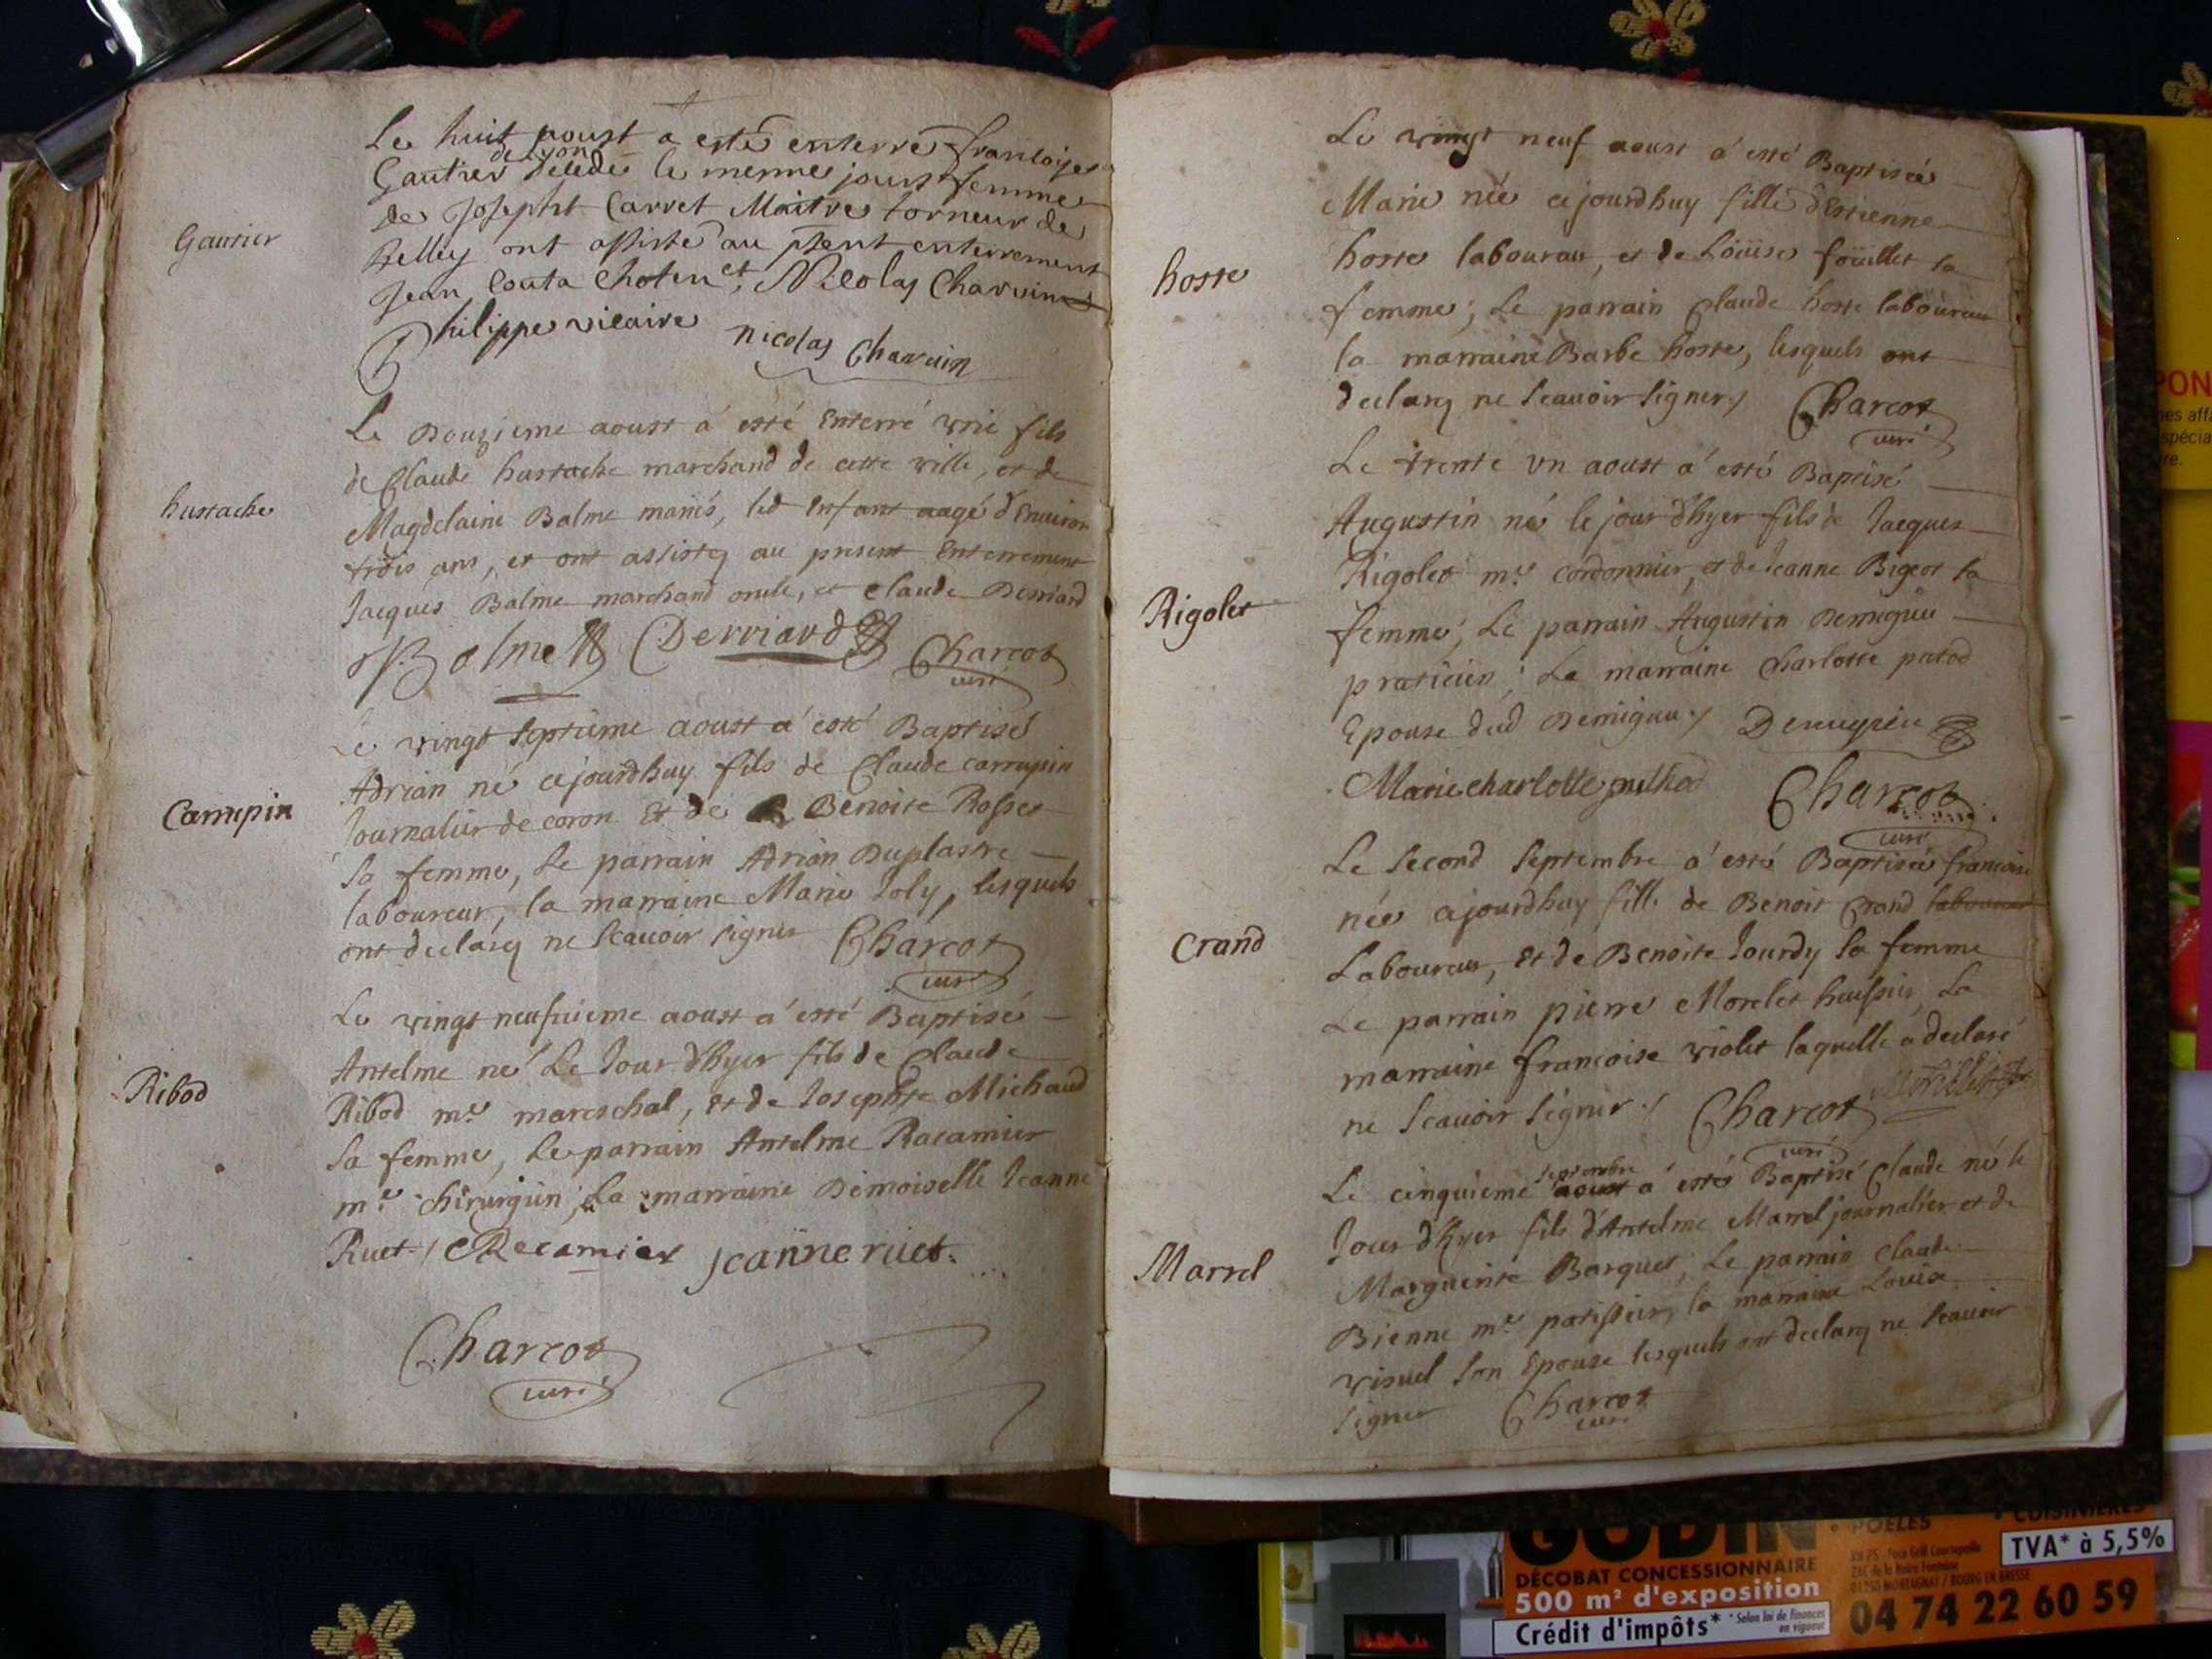 Le huit aoust a esté enterré francoise
de Lyon
Gautier decedée le meme jour femme
de Josepht Carret Maitre torneur de
Belley ont assisté au pñt enterrement
Jean Couta Choten et Nicolas Charvin
Philippe vicaire nicolas Charvin
Gautier
Le Douzieme aoust a esté Enterré un fils
de Claude hustache marchand de cette ville, et de
Magdelaine Balme mariés, led Enfant aagé d'Environ
trois ans, et ont assistez au present Enterrement
Jacques Balme marchand oncle, et Claude Derriard
Balme Derriard Charcot
curé
hustache
Le vingt septieme aoust a esté Baptisé
Adrian né ajourdhuy fils de Claude carrupin
Journalier de coron Et de Benoite Rosset
sa femme, Le parrain Adrian Duplastre
laboureur, la marraine Marie Joly, lesquels
ont declarez ne scauoir signer Charcot
curé
Carrupin
Le vingt neufuieme aoust a esté Baptisé
Antelme né Le Jour d'hyer fils de Claude
Ribod me mareschal, et de Josephte Michaud
sa femme, Le parrain Antelme Racamier
me chirurgien; La marraine Demoiselle Jeanne
Ruet / Recamier jeanne ruet
Charcot
curé
Ribod
Le vingt neuf aoust a esté Baptiseé
Marie née ajourdhuy fille d'Estienne
hoste laboureur, et de Loüise foüillet sa
femme; Le parrain Claude hoste laboureur
la marraine Barbe hoste, lesquels ont
declarez ne scauoir signer / Charcot
curé
hoste
Le trente un aoust a esté Baptisé
Augustin né le jour d'hyer fils de Jacques
Rigolet me cordonnier, et de Jeanne Bigeot sa
femme; Le parrain Augustin Demigieu
praticien; La marraine Charlotte putod
Epouse dud Demigieu / Demigieu
Marie charlotte puthod Charcot
curé
Rigolet
Le second septembre a esté Baptiseé francoise
née ajourdhuy fille de Benoit Crand laboureur
Laboureur, et de Benoite Jourdy sa femme
Le parrain pierre Morelet huissier, La
marraine francoise violet laquelle a declaré
ne scauoir signer / Charcot
curé
Crand
septembre
Le cinquieme aoust a esté Baptisé Claude né le
Jour d'hyer fils d'Antelme Marrel journalier et de
Marguerite Barquet; Le parrain Claude
Bienne me patissier, la marraine Louise
visuel son Epouse lesquels ont declarez ne scauoir
signer Charcot
curé
Marrel
GODIN
POÊLES
CUISINIÈRES
DÉCOBAT CONCESSIONNAIRE
500 m² d'exposition
TVA* à 5,5%
Crédit d'impôts*
* Selon loi de finances
en vigueur
01250 MONTAGNAT / BOURG EN BRESSE
04 74 22 60 59